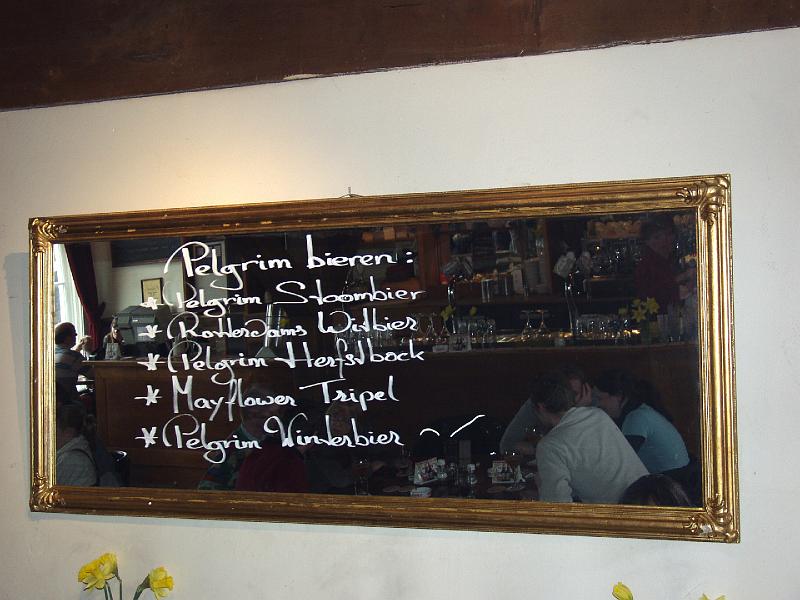 Pelgrim bieren:
* Pelgrim Stoombier
* Rotterdams Witbier
* Pelgrim Herfstbock
* Mayflower Tripel
* Pelgrim Winterbier